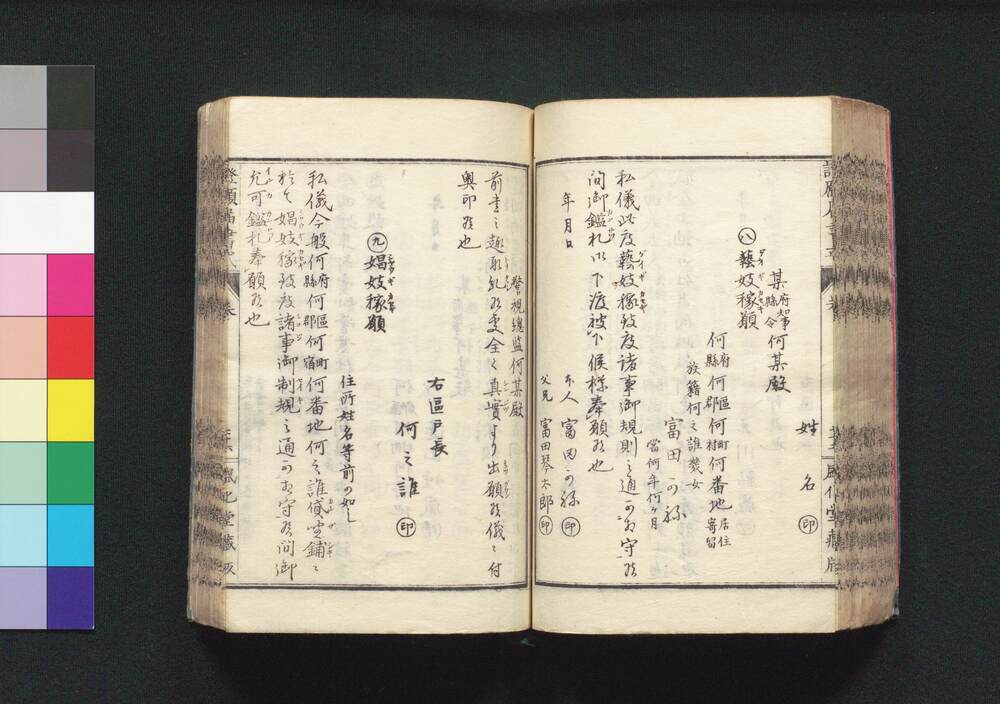 姓名㊞
某府知事縣令何某殿
㊇藝妓稼願
何府縣何區郡何町村何番地居住寄留
族籍何之誰幾女
富田つ祢
當何年何ヶ月
私儀此度藝妓稼致度諸事御規則之通り可相守候
間御鑑札御下渡被下候様奉願候也
年月日
本人 富田つ祢㊞
父兄 富田琴太郎㊞
警視總監何某殿
前書之趣取糺候處全く真實より出願候儀ニ付
奥印候也
右區戸長
何之誰㊞
㊈娼妓稼願
住所姓名等前の如し
私儀今般何府縣何區郡何町宿何番地何之誰貸坐鋪ニ
於て娼妓稼致度諸事御制規之通り可相守候間御
允可鑑札奉願候也
盛化堂藏版